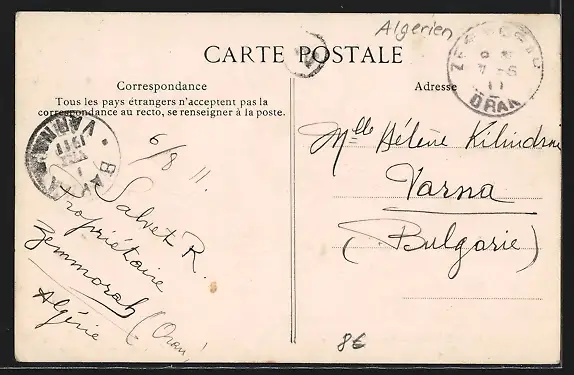 Algerien
CARTE POSTALE
Correspondance
Tous les pays étrangers n'acceptent pas la
correspondance au recto, se renseigner à la poste.
6/8 11.
Salvet R.
Propriétaire
Zemmorah (Oran)
Algérie
Adresse
ORAN
Mlle Hélène Kilindrini
Varna
(Bulgarie)
VARNA
1911
8€